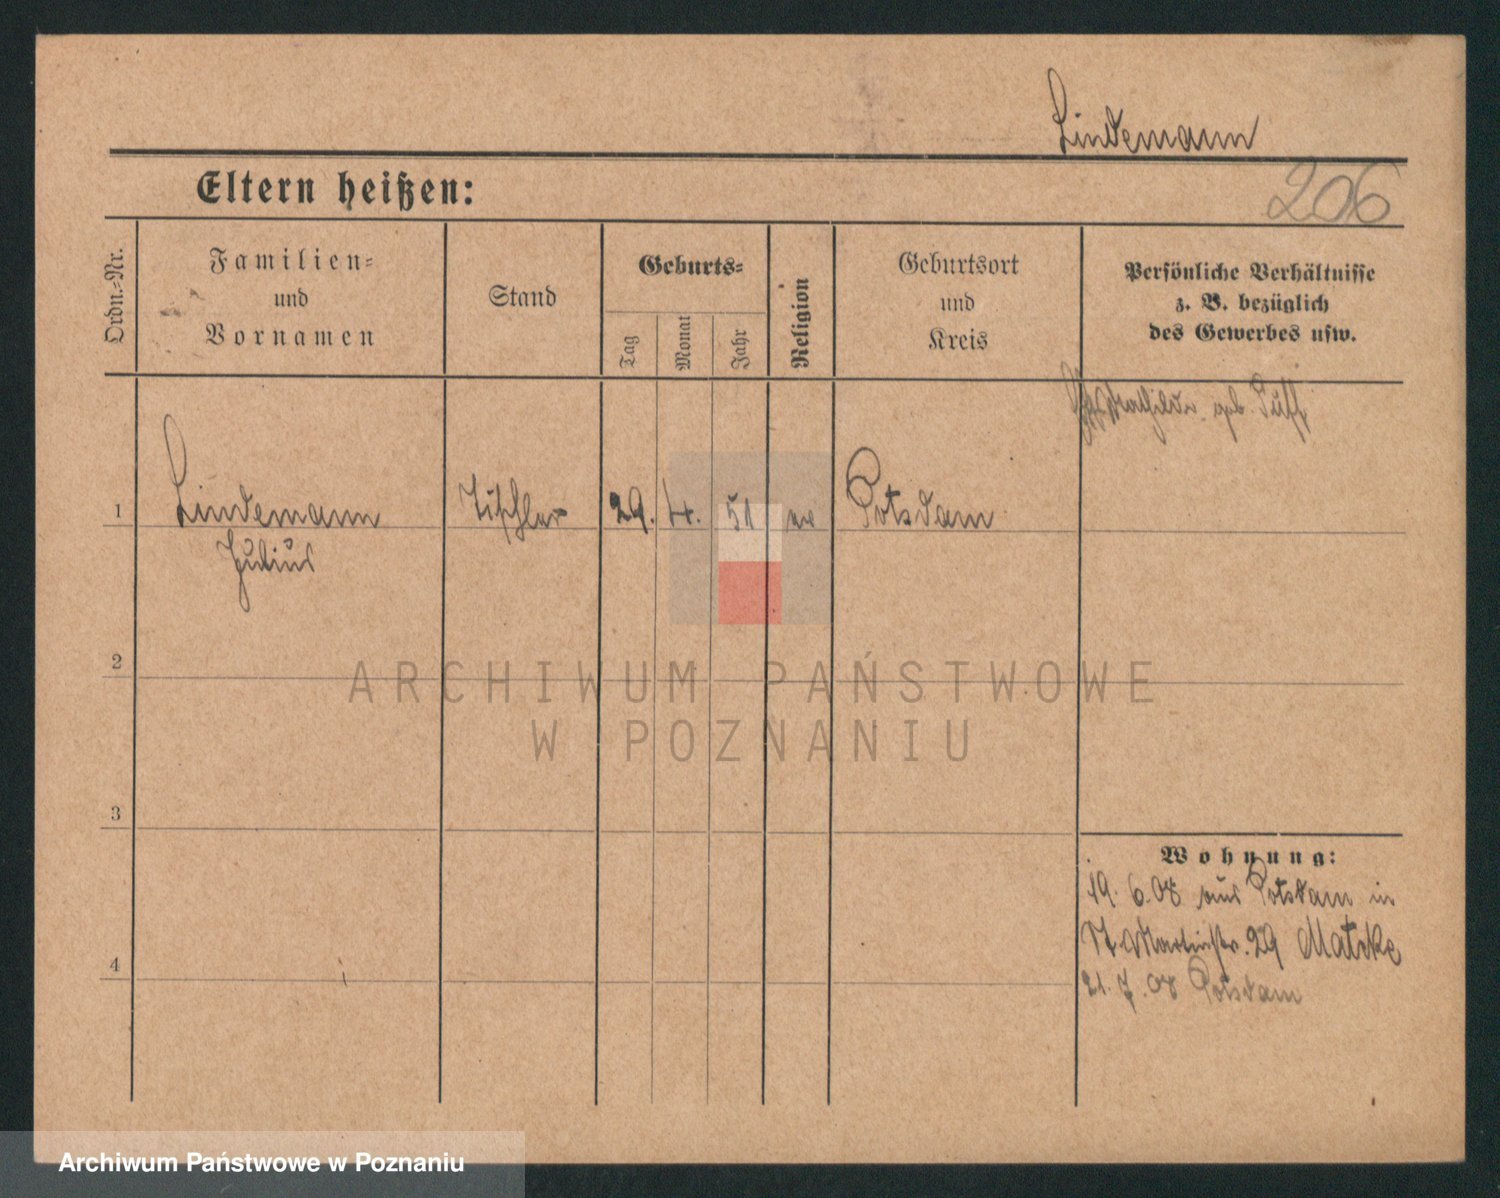 Lindemann
Eltern heißen:
206
Ordn.-Nr.
Familien-
und
Vornamen
Stand
Geburts-
Tag
Monat
Jahr
Religion
Geburtsort
und
Kreis
Persönliche Verhältnisse
z. B. bezüglich
des Gewerbes usw.
Mathilde geb. Puff
1
Lindemann
Julius
Tischler
29.
4.
51
ev
Potsdam
2
ARCHIWUM PAŃSTWOWE
W POZNANIU
3
4
Wohnung:
19. 6. 08 aus Potsdam in
St. Martinstr. 29 Matzke
21. 7. 08 Potsdam
Archiwum Państwowe w Poznaniu